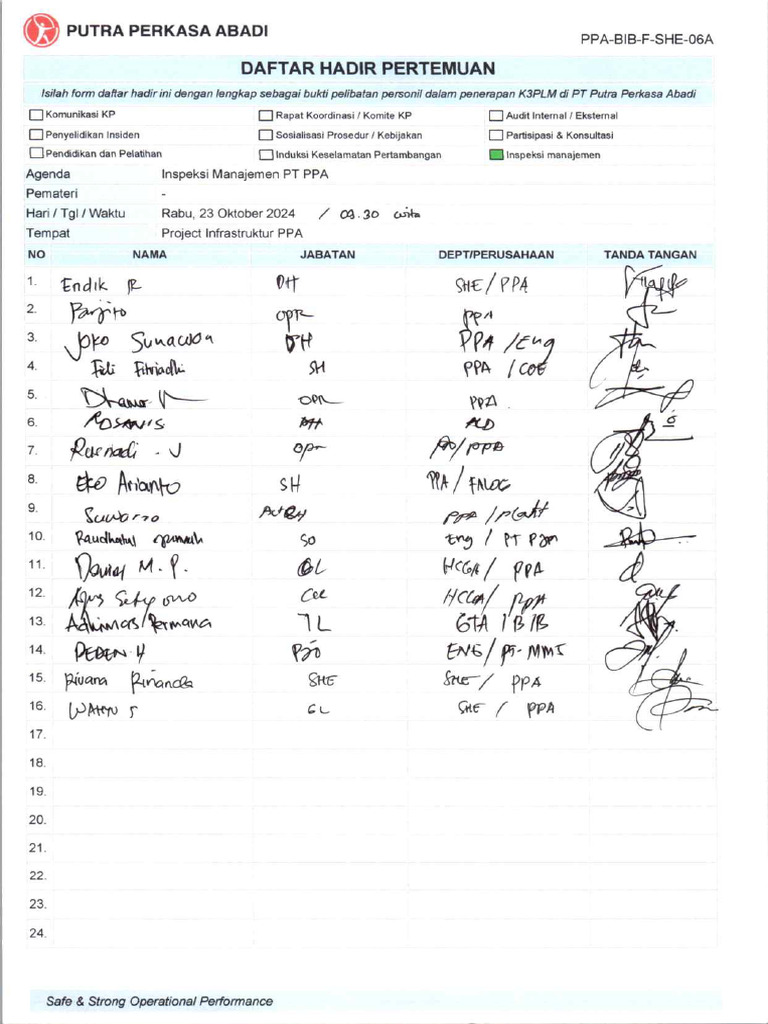 PUTRA PERKASA ABADI
PPA-BIB-F-SHE-06A
DAFTAR HADIR PERTEMUAN
Isilah form daftar hadir ini dengan lengkap sebagai bukti pelibatan personil dalam penerapan K3PLM di PT Putra Perkasa Abadi
Komunikasi KP Rapat Koordinasi / Komite KP Audit Internal / Eksternal
Penyelidikan Insiden Sosialisasi Prosedur / Kebijakan Partisipasi & Konsultasi
Pendidikan dan Pelatihan Induksi Keselamatan Pertambangan Inspeksi manajemen
Agenda Inspeksi Manajemen PT PPA
Pemateri -
Hari / Tgl / Waktu Rabu, 23 Oktober 2024 / 03.30 wita
Tempat Project Infrastruktur PPA
NO NAMA JABATAN DEPT/PERUSAHAAN TANDA TANGAN
1. Endik R DH SHE / PPA
2. OPR PPA
3. Joko Sunawoa DH PPA / Eng
4. Feli Fitriadhi SH PPA / COE
5. OPR PPA
6. ROSANIS
7. opr /PPA
8. Eko Arianto SH PPA /
9. Suwarno PPA /
10. Raudhatul SO Eng / PT
11. M. P. GL HCGA / PPA
12. Agus Setyono HCGA / PPA
13. Adhimas Permana TL GTA / BIB
14. DEDEN H PJO ENG / PT-MMI
15. Rivana Rinanda SHE SHE / PPA
16. WAHYU S GL SHE / PPA
17.
18.
19.
20.
21.
22.
23.
24.
Safe & Strong Operational Performance